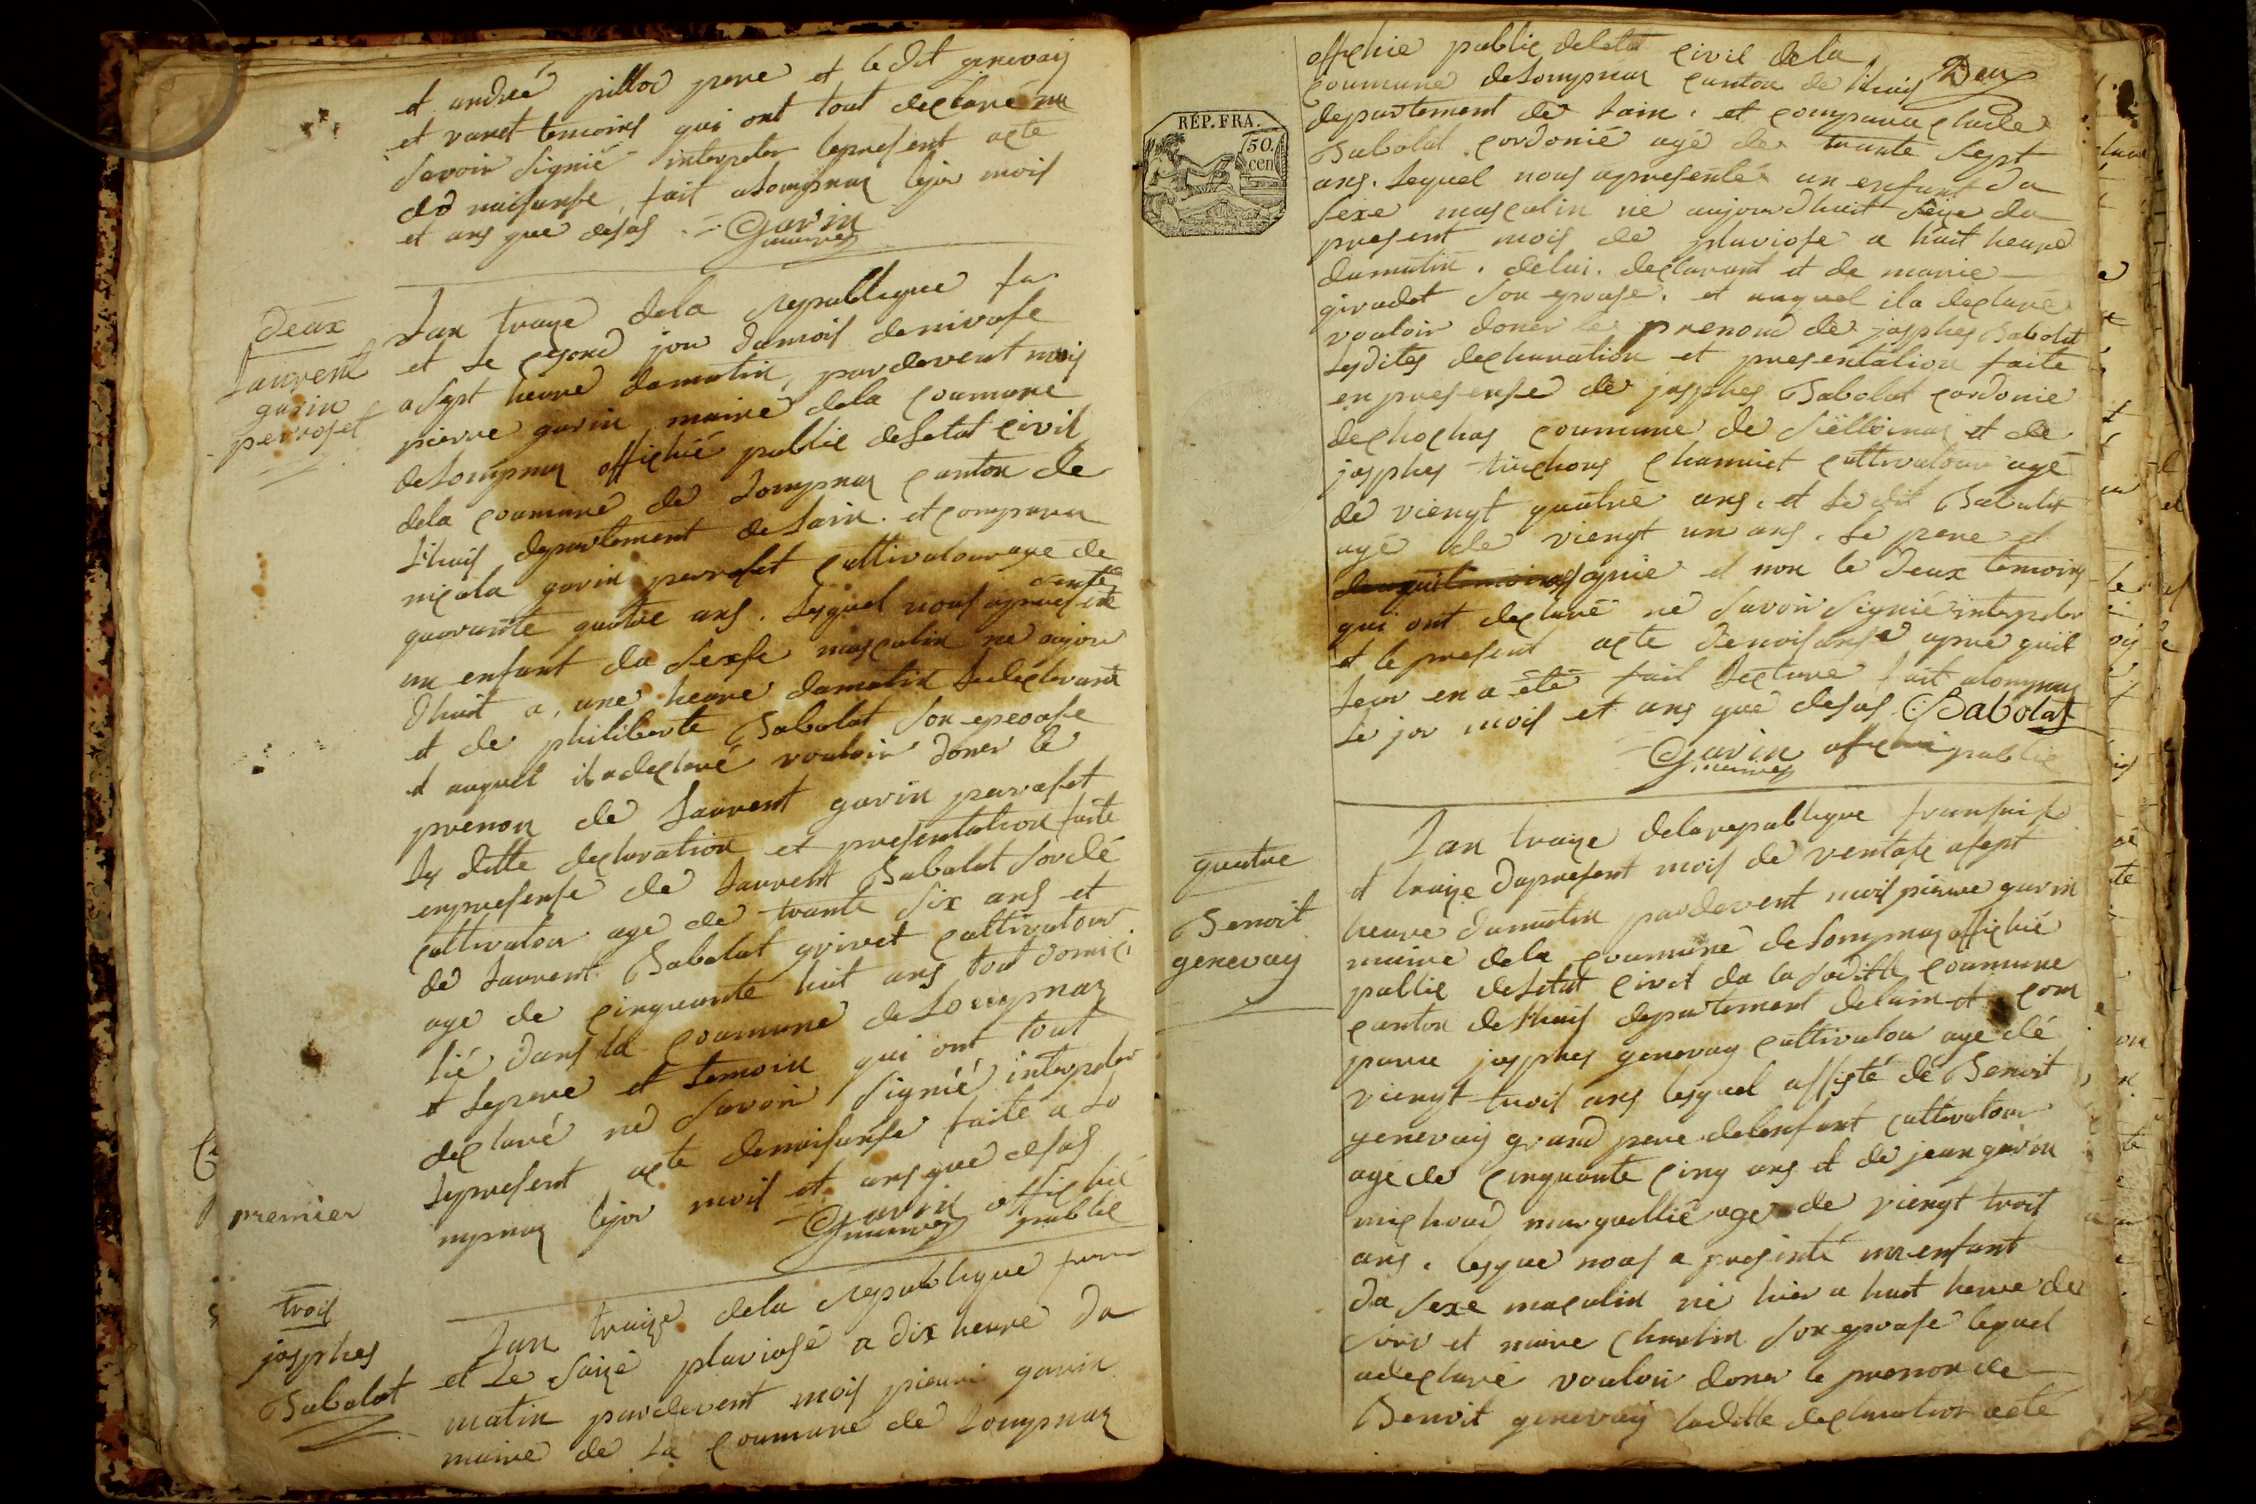 et andreé pillod pere et ledit genevay
et varret temoins qui ont tout declaré ne
savoir signié interpeler lepresent acte
de naisanse, fait alompnas lejor mois
et ans que desus = Gavin
maire
deux
laurent
gavin
perroset
Lan traize dela republique fr
et le segond jour dumois denivose
a sept heure dumatin, pardevent mois
pierre gavin maire dela coumune
delompnas offichié public deletat civil
dela coumune de Lompnas canton de
Lhuis departement de Lain. et comparu
nicola gavin perroset cultivatour age de
quarante quatre ans. Lequel nous apresenté
un enfant du sexse masculin ne aujour
dhuit a, une heure dumatin ludeclarant
et de philiberte Babolat son epeouse
et auquel il adeclaré vouloir doner le
prenon de Laurent gavin perroset
les ditte declaration et presentation faite
enpresense de Laurent Babolat sordé
cultivatou age de trante six ans et
de Laurent Babolat grivet cultivatour
age de cinquante huit ans tout domici
lié dans la coumune de Lompnas
et lepere et temoin qui ont tout
declaré ne savoir signié interpeler
lepresent acte denaisanse faite a Lo
mpnas lejor mois et ans que desus
Gavin offichié
maire public
premier
trois
josphes
Babolat
Lan traize dela republique fran
et Le saize pluviose a dix heure du
matin pardevent mois pierre gavin
maire de La coumune de Lompnas
offichié public deletat civil dela
Deux
coumune delompnas canton de lhuis
departement de Lain. et comparu claude
RÉP. FRA.
50.
cen
Babolat cordonié agé de trante sept
ans. Lequel nous apresenté un enfant du
sexe masculin né aujourdhuit seize du
present mois de pluviose a huit heure
dumatin. delui declarant et de marie
giradet son epouse. et auquel ila declaré
vouloir doner le prenom de josphes Babolat
lesdites declaration et presentation faite
enpresense de josphes Babolat cordonié
dechochas coumune de et de
josphes tuchons cultivatour agé
de viengt quatre ans. et Ledit Babolat
agé de viengt un ans. Le pere et
signié et non le deux temoins
qui ont declaré ne savoir signié interpeler
et le present acte denaisanse apres quil
leur en a été fait lecture fait alompnas
Le jor mois et ans que desus. Babolat
Gavin offichié public
maire
quatre
Benoit
genevay
Lan traize delarepublique fransaise
et traize dupresent mois de ventose asept
heure dumatin pardevent mois pierre gavin
maire dela coumune de Lompnas offichié
public deletat civil du la sudite coumune
canton delhuis departement delain et com
paru josphes genevay cultivatou age dé
viengt trois ans lequel assisté dé Benoit
genevay grand pere delenfant cultivatour
age de cinquante cinq ans et de jean gavin
michoud marguillié age de viengt troit
ans. lesque nous a presinté un enfant
du sexe masculin né hier a huit heure de
soir et marie son epouse lequel
adeclaré vouloir doner le prenon de
Benoit genevay ladite declaration acte